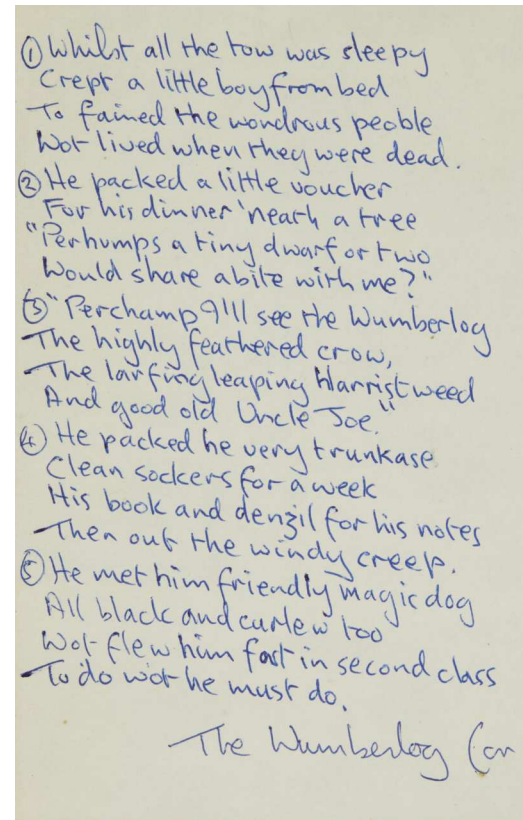 ① Whilst all the tow was sleepy
Crept a little boy from bed
To fained the wondrous peoble
Wot lived when they were dead.
② He packed a little voucher
For his dinner 'neath a tree
"Perhumps a tiny dwarf or two
Would share abite with me?"
③ "Perchamp I'll see the Wumberlog
The highly feathered crow,
The larfing leaping Harristweed
And good old Uncle Joe."
④ He packed he very trunkase
Clean sockers for a week
His book and denzil for his notes
Then out the windy creep.
⑤ He met him friendly magic dog
All black and curlew too
Wot flew him fast in second class
To do wot he must do.
The Wumberlog (or